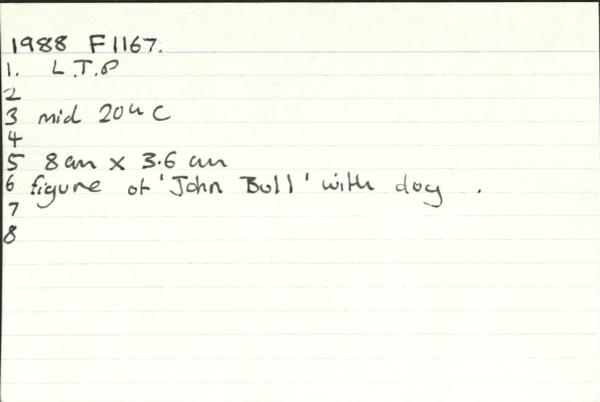 1988 F1167.
1. L.T.P
2
3 mid 20th C
4
5 8cm x 3.6 cm
6 figure of 'John Bull' with dog .
7
8